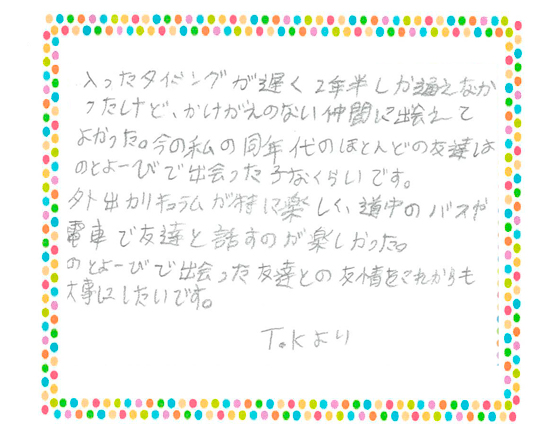 入ったタイミングが遅く2年半しか通えなか
ったけど、かけがえのない仲間に出会えて
よかった。今の私の同年代のほとんどの友達は
のとよーびで出会った子なくらいです。
外出カリキュラムが特に楽しく、道中のバスや
電車で友達と話すのが楽しかった。
のとよーびで出会った友達との友情をこれからも
大事にしたいです。
T.Kより